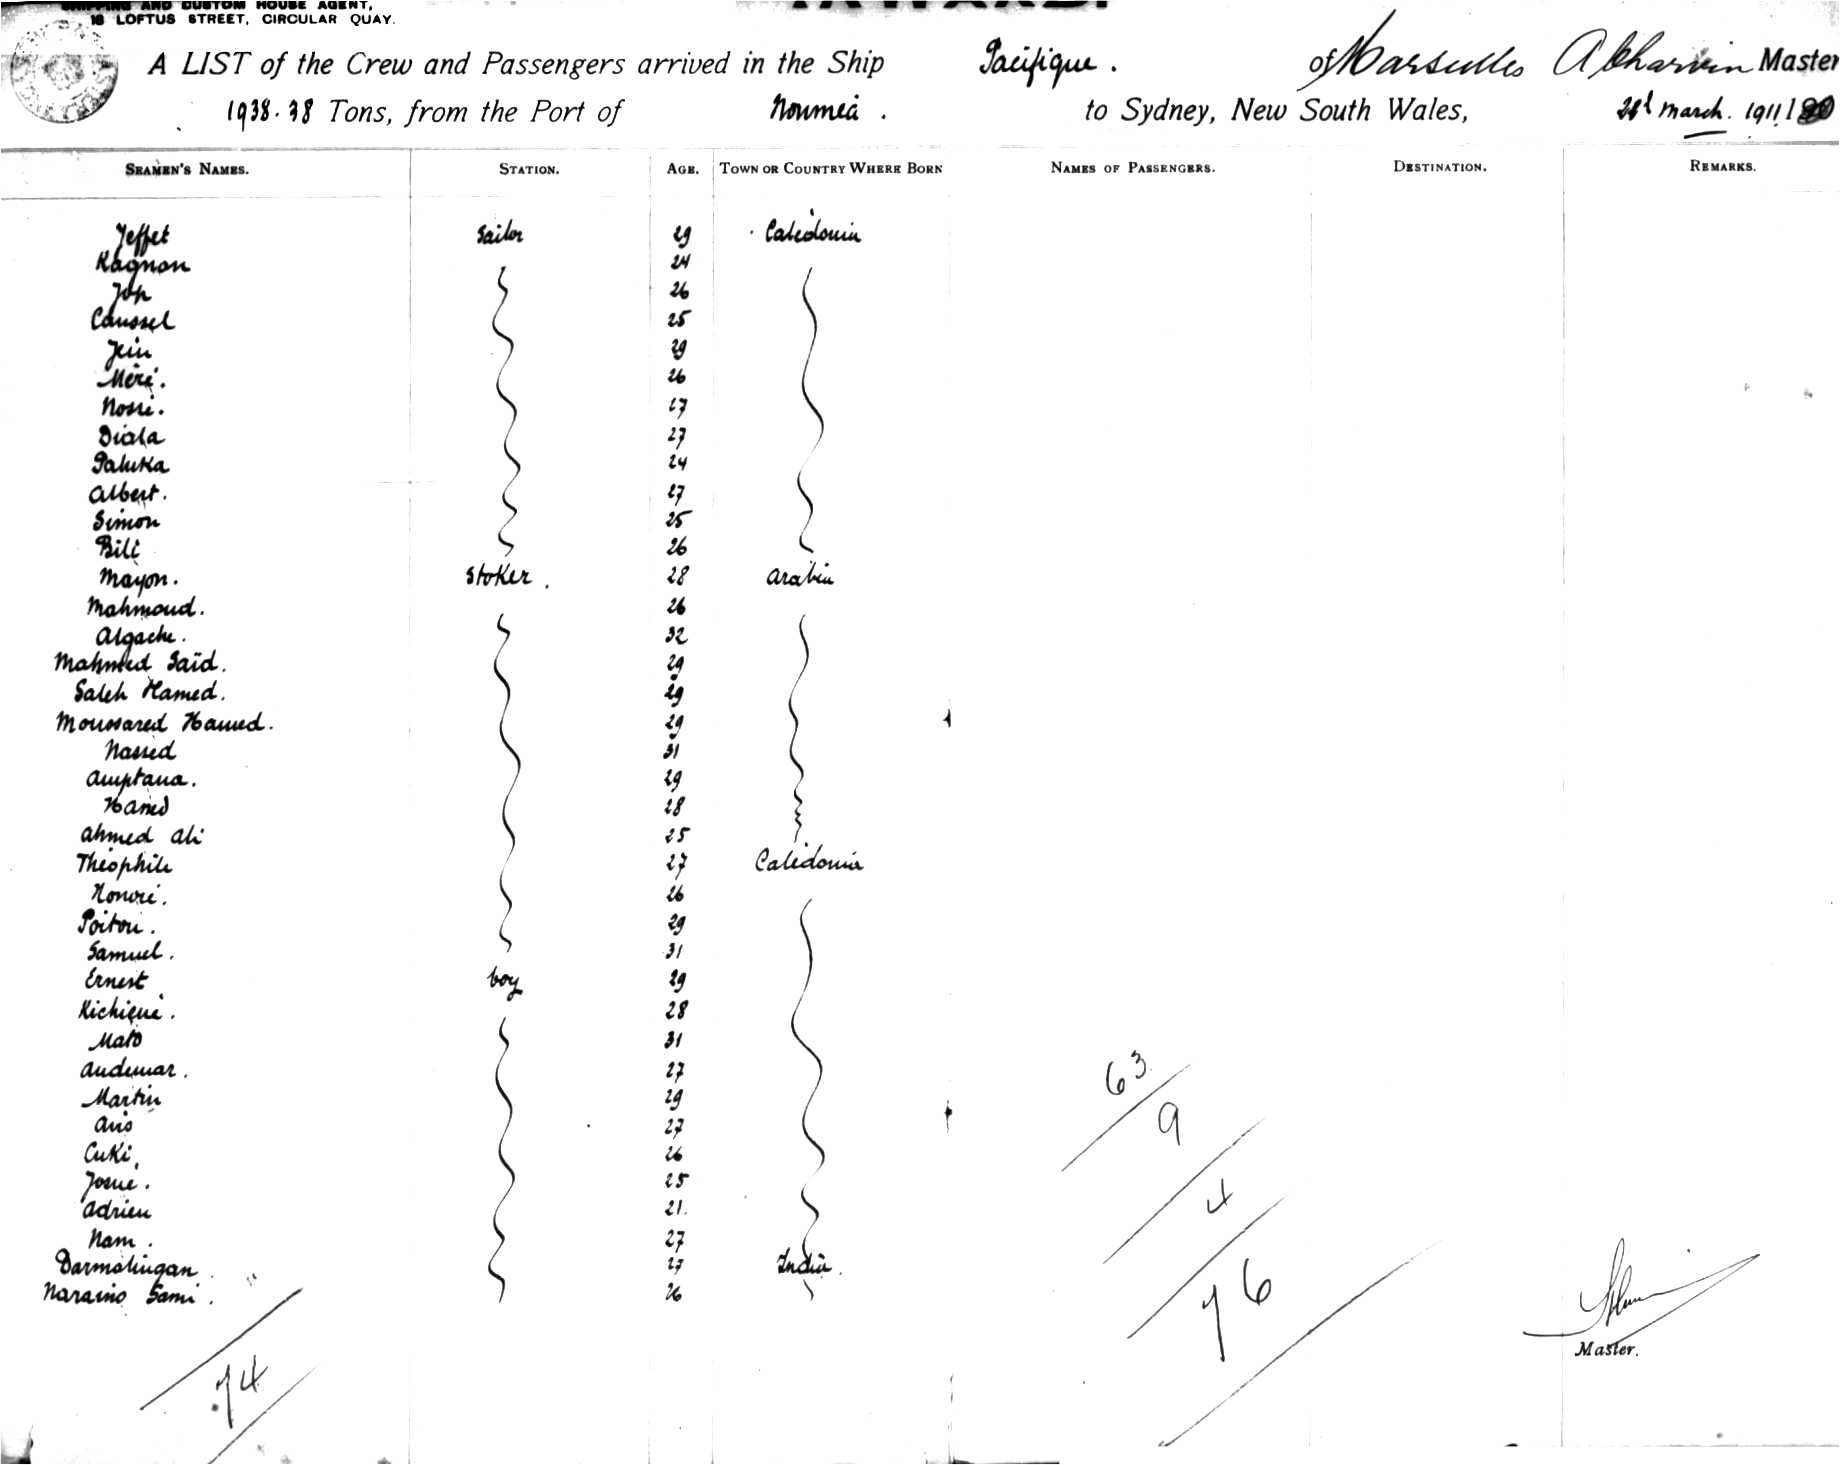 SHIPPING AND CUSTOM HOUSE AGENT,
18 LOFTUS STREET, CIRCULAR QUAY.
INWARD.
A LIST of the Crew and Passengers arrived in the Ship Pacifique . of Marseilles A Charvin Master
1938.38 Tons, from the Port of Noumea . to Sydney, New South Wales, March. 1911
SEAMEN'S NAMES. STATION. AGE. TOWN OR COUNTRY WHERE BORN NAMES OF PASSENGERS. DESTINATION. REMARKS.
Jeffet Sailor 29 Caledonia
Kagnon 24
Jop 26
Caussel 25
Jein 29
Méré. 26
Nossé. 27
Diala 27
Paluka 24
Albert. 27
Simon 25
Bill 26
Mayon. Stoker . 28 Arabia
Mahmoud. 26
Algache. 32
Mahmed Saïd. 29
Saleh Hamed. 29
Moussared Hamed. 29
Nassed 31
Amptana. 29
Hamed 28
Ahmed Ali 25
Théophile 27 Calédonia
Honoré. 26
Poitou. 29
Samuel. 31
Ernest boy 29
Kichiqué. 28
Mato 31
Audemar. 27
Martin 29
Aris 27
Cuki, 26
Josué. 25
Adrien 21.
Nam. 27
Darmalingan 27 India.
Naraino Sami. 26
63
9
4
76
74
Master.